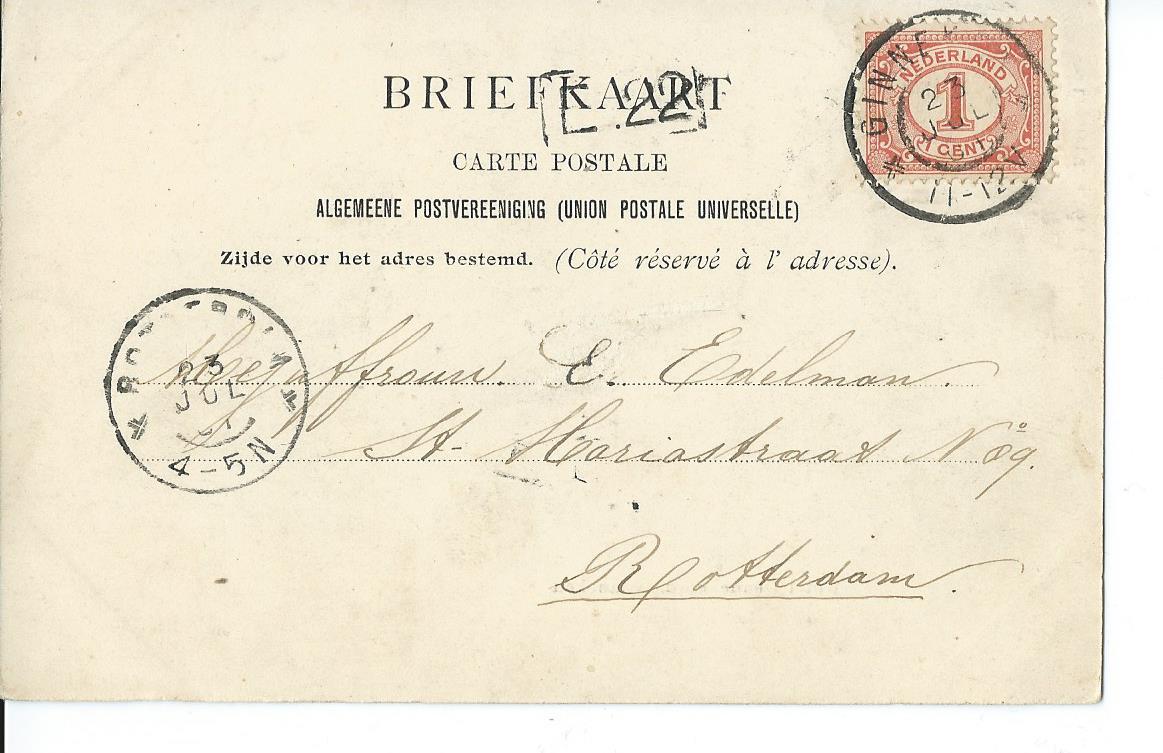 BRIEFKAART
[E.22]
CARTE POSTALE
ALGEMEENE POSTVEREENIGING (UNION POSTALE UNIVERSELLE)
Zijde voor het adres bestemd. (Côté réservé à l' adresse).
GINNEKEN
23
JUL
11-12V
NEDERLAND
1
CENT
ROTTERDAM
23
JUL
01
4-5N
Mejuffrouw. E. Edelman.
St Mariastraat No
Rotterdam.